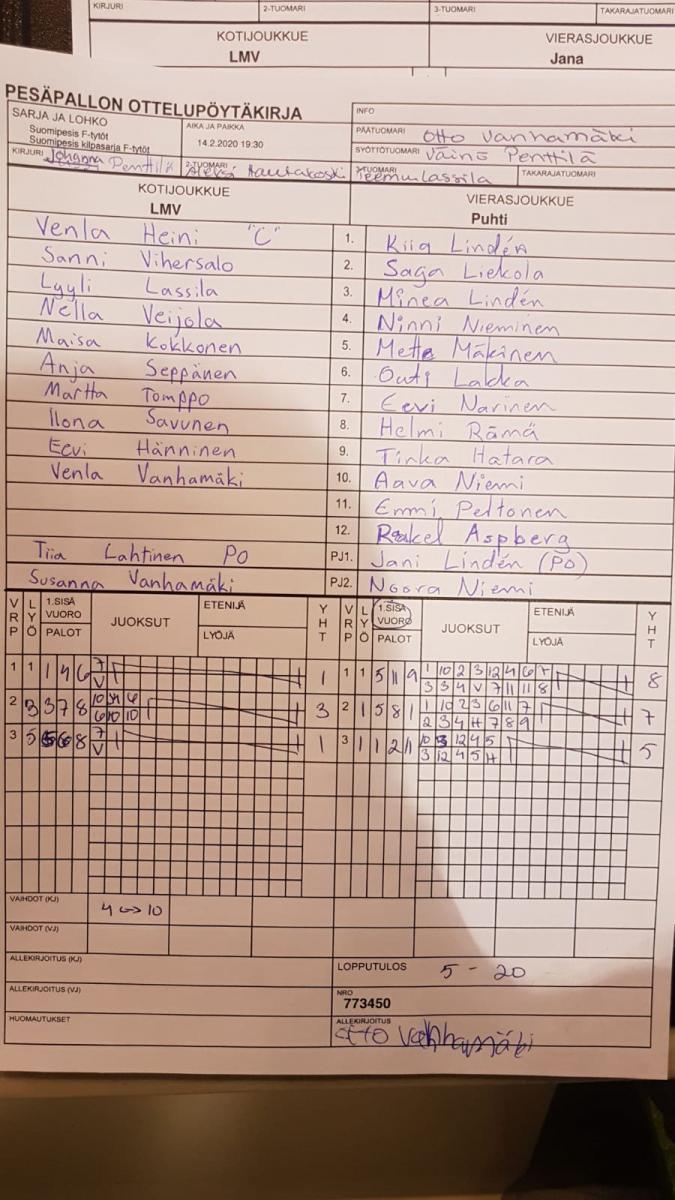 KIRJURI 2-TUOMARI 3-TUOMARI TAKARAJATUOMARI
KOTIJOUKKUE VIERASJOUKKUE
LMV Jana
PESÄPALLON OTTELUPÖYTÄKIRJA
INFO
SARJA JA LOHKO
Suomipesis F-tytöt
Suomipesis kilpasarja F-tytöt
AIKA JA PAIKKA
14.2.2020 19:30
PÄÄTUOMARI Otto Vanhamäki
SYÖTTÖTUOMARI Väinö Penttilä
KIRJURI Johanna Penttilä 2-TUOMARI Aleksi Rautakoski 3-TUOMARI Teemu Lassila TAKARAJATUOMARI
KOTIJOUKKUE VIERASJOUKKUE
LMV Puhti
Venla Heini "C" 1. Kiia Lindén
Sanni Vihersalo 2. Saga Liekola
Lyyli Lassila 3. Minea Lindén
Nella Veijola 4. Ninni Nieminen
Maisa Kokkonen 5. Mette Mäkinen
Anja Seppänen 6. Outi Lakka
Martta Tomppo 7. Eevi Narinen
Ilona Savunen 8. Helmi Rämä
Eevi Hänninen 9. Tinka Hatara
Venla Vanhamäki 10. Aava Niemi
11. Emmi Peltonen
12. Rakel Aspberg
Tiia Lahtinen PO PJ1. Jani Lindén (PO)
Susanna Vanhamäki PJ2. Noora Niemi
VRP LYÖ 1.SISÄ VUORO PALOT JUOKSUT ETENIJÄ LYÖJÄ YHT VRP LYÖ 1.SISÄ VUORO PALOT JUOKSUT ETENIJÄ LYÖJÄ YHT
1 1 1 4 6 7 1 1 1 5 11 9 1 10 2 3 12 4 6 7 8
V 3 3 4 V 7 11 11 8
2 3 3 7 8 10 6 3 2 1 5 8 1 1 10 2 3 6 11 7 7
6 10 10 2 3 4 H 7 8 9
3 5 6 8 7 1 3 1 1 2 11 10 3 12 4 5 5
V 3 12 4 5 H
VAIHDOT (KJ) 4 <-> 10
VAIHDOT (VJ)
ALLEKIRJOITUS (KJ) LOPPUTULOS 5 - 20
ALLEKIRJOITUS (VJ) NRO
773450
HUOMAUTUKSET ALLEKIRJOITUS
Otto Vanhamäki